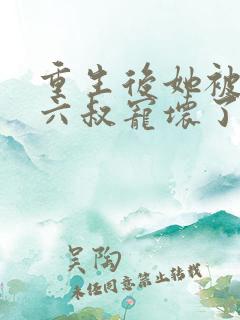 重生后她被
六叔宠坏了
吴陶
未经同意禁止转载